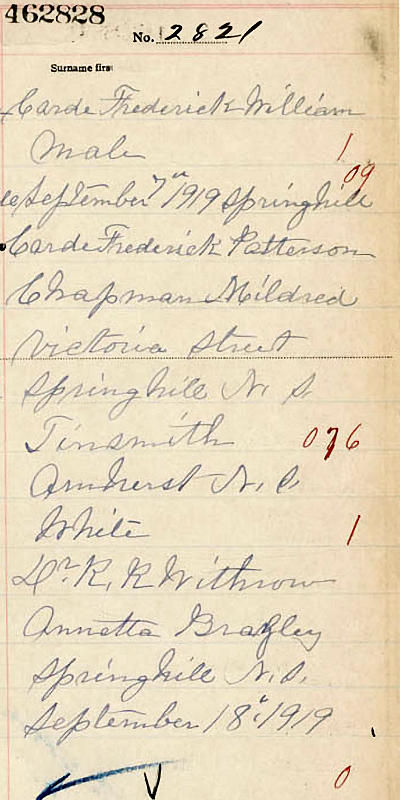 462828
No. 2821
Surname first
Carde Frederick William
Male 1
09
September 7th 1919 Springhill
Carde Frederick Patterson
Chapman Mildred
Victoria Street
Springhill N. S.
Tinsmith 076
Amherst N. S.
White 1
Dr. R. R Withrow
Annetta
Springhill N. S.
September 18th 1919
0